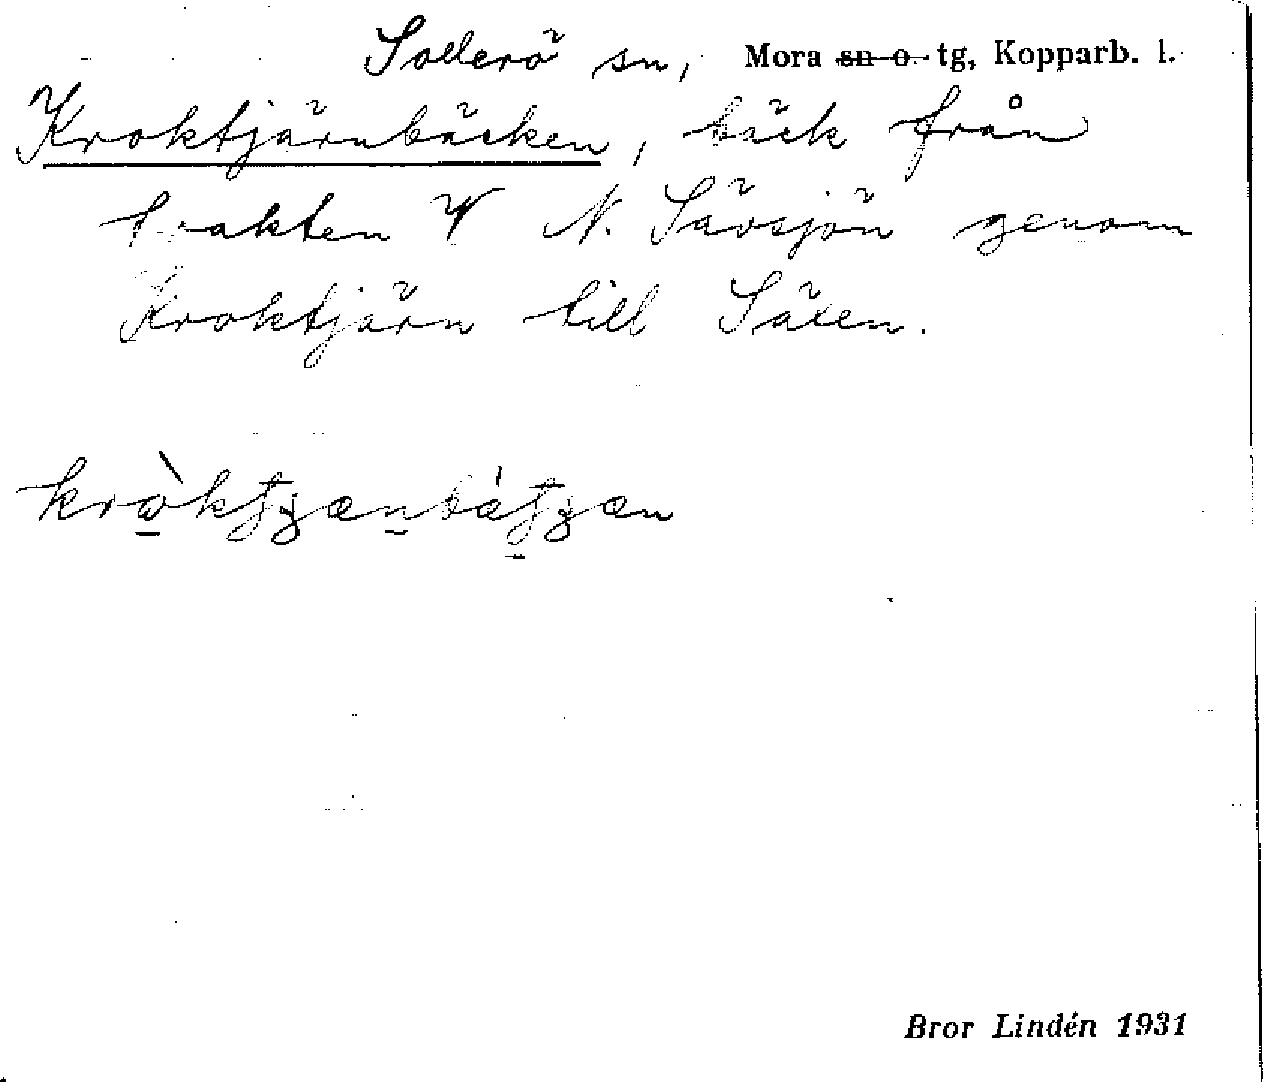 Sollerö sn, Mora sn o. tg, Kopparb. l.
Kroktjärnbäcken, bäck från
trakten V N. Sävsjön genom
Kroktjärn till Säxen.
Bror Lindén 1931